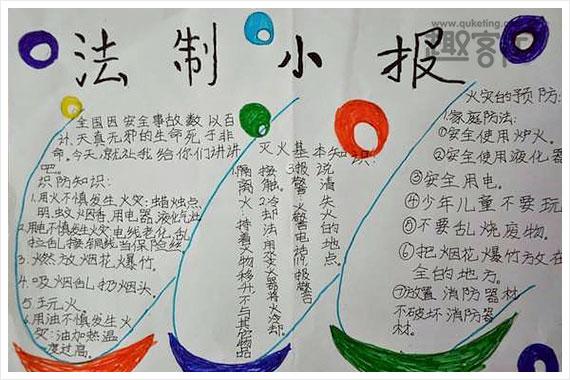 www.quketing.com
趣客
法制小报
全国因安全事故数以百
计.天真无邪的生命死于非
命.今天,就让我给你们讲讲
吧。
识防知识:
1.用火不慎发生火灾:蜡烛点
明.蚊火烟香.用电器.液化气油
2.用电不慎发生火灾电线老化.乱
拉乱接铜线当保险丝
3.燃放烟花爆竹.
4.吸烟乱扔烟头.
5.玩火
6.用油不慎发生火
灾:油加热温
度过高。
灭火基本知识:
1.隔离火:将着火物移开.不与其他物品
接触.2.冷却法:用灭火器将火冷却.
3.报警:火警电话
说清失火的地点.
火灾的预防:
1.家庭防法:
①安全使用炉火.
②安全使用液化器
③安全用电.
④少年儿童不要玩
⑤不要乱烧废物.
⑥把烟花爆竹放在
全的地方。
⑦放置消防器材
不破坏消防器
材.